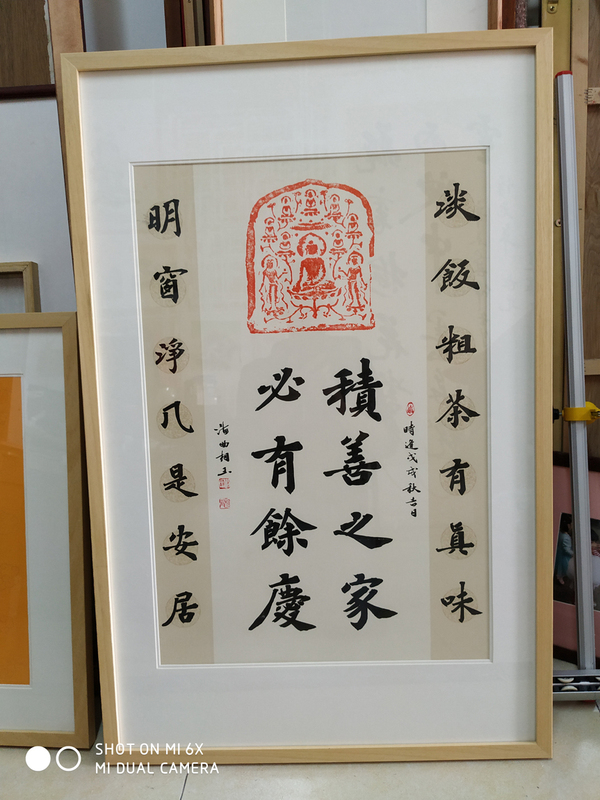 淡飯粗茶有真味
時逢戊戌秋吉日
積善之家
必有餘慶
明窗淨几是安居
SHOT ON MI 6X
MI DUAL CAMERA